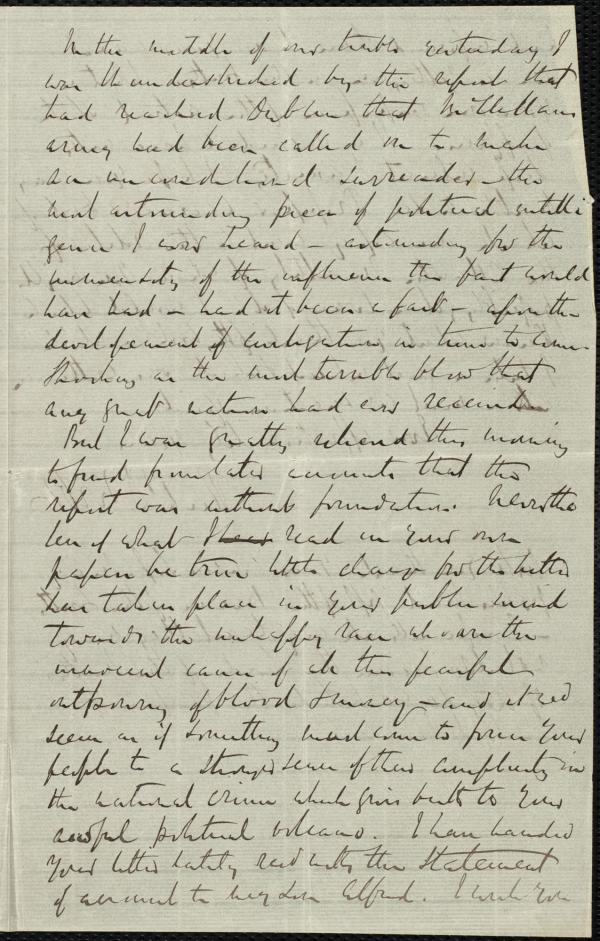 In the middle of our trouble yesterday I
was thunderstruck by the report that
had reached Dublin that McClellans
army had been called on to make
an unconditional surrender – the
most astounding piece of political intelli
gence I ever heard – astounding for the
immensity of the influence the fact would
have had – had it been a fact –, upon the
developement of civilization in time to come
Shocking as the most terrible blow that
any great nation had ever received
But I was greatly relieved this morning
to find from later accounts that the
report was without foundation. Neverthe
less if what I read in your own
papers be true little change for the better
has taken place in your public mind
towards the unhappy race who are the
innocent cause of all this fearful
outpouring of blood & money – and it wd
seem as if something must come to force your
people to a stronger sense of their complicity in
the national crime which gives birth to your
awful political volcano. I have handed
your letter lately recd with the statement
of account to my son Alfred. I wish you